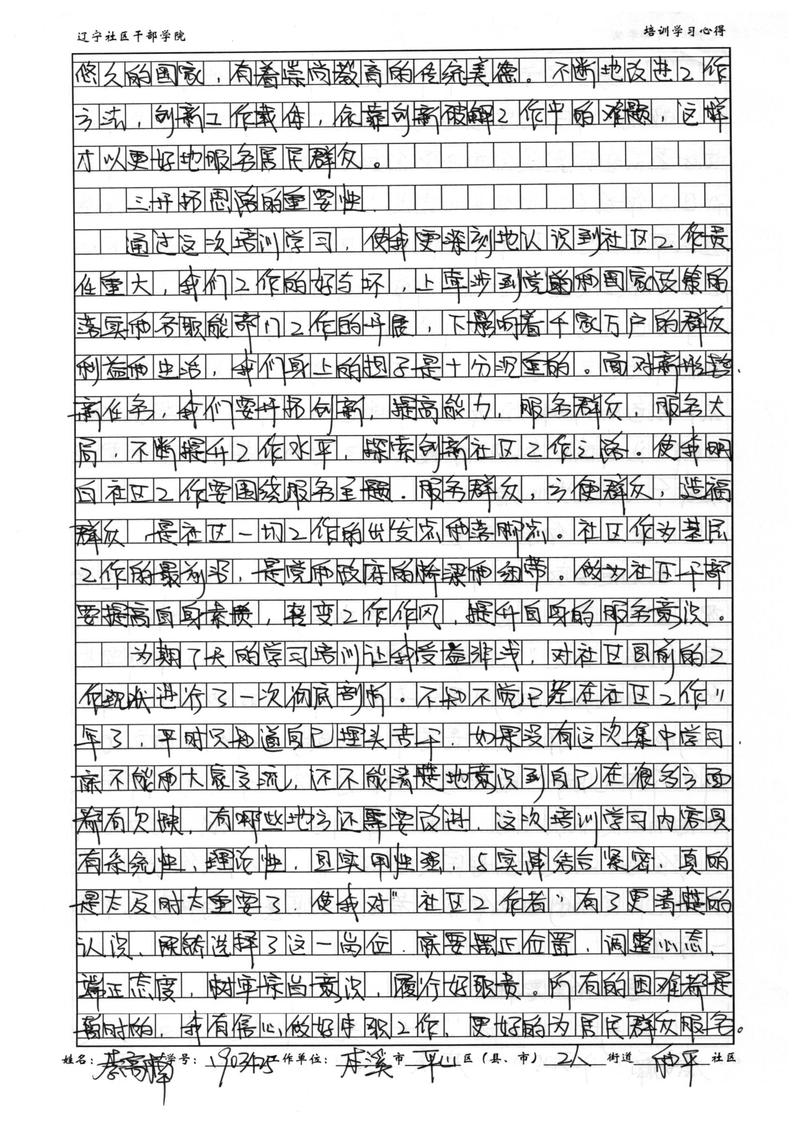 辽宁社区干部学院 培训学习心得
悠久的国家，有着崇尚教育的传统美德。不断地改进工作
方法，创新工作载体，依靠创新破解工作中的难题，这样
才以更好地服务居民群众。
三开拓思路的重要性
通过这次培训学习，使我更深刻地认识到社区工作责
任重大，我们工作的好与坏，上牵涉到党的和国家政策的
落实和各职能部门工作的开展，下影响着千家万户的群众
利益和生活，我们身上的担子是十分沉重的。面对新形势、
新任务，我们要开拓创新，提高能力，服务群众，服务大
局，不断提升工作水平，探索创新社区工作之路。使我明
白社区工作要围绕服务主题，服务群众，方便群众，造福
群众，是社区一切工作的出发点和落脚点。社区作为基民
工作的最前沿，是党和政府的桥梁和纽带。做为社区干部
要提高自身素质，转变工作作风，提升自身的服务意识。
为期7天的学习培训让我受益非浅，对社区目前的工
作现状进行了一次彻底剖析。不知不觉已经在社区工作11
年了，平时只知道自己埋头苦干，如果没有这次集中学习，
就不能和大家交流，还不能清楚地意识到自己在很多方面
都有欠缺，有哪些地方还需要改进，这次培训学习内容具
有系统性、理论性，且实用性强，与实际结合紧密，真的
是太及时太重要了，使我对“社区工作者”有了更清楚的
认识，既然选择了这一岗位，就要摆正位置，调整心态，
端正态度，树牢宗尚意识，履行好职责。所有的困难都是
暂时的，我有信心做好本职工作，更好的为居民群众服务。
姓名： 学号：1903425 工作单位：本溪 市 平山 区（县、市） 工人 街道 和平 社区